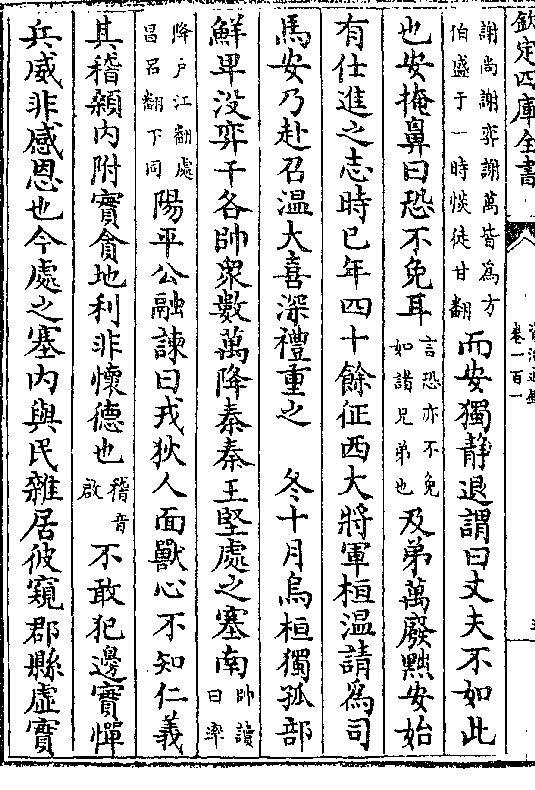 欽定四庫全書
卷一百一
謝尚謝弈謝萬皆為方
伯盛于一時惔徒甘翻
而安獨静退謂曰丈夫不如此
也安掩鼻曰恐不免耳
言恐亦不免
如諸兄弟也
及弟萬廢黜安始
有仕進之志時已年四十餘征西大將軍桓温請為司
馬安乃赴召温大喜深禮重之 冬十月烏桓獨孤部
鮮卑没弈干各帥衆數萬降秦秦王堅處之塞南
帥讀
曰率
降户江翻處
昌吕翻下同
陽平公融諫曰戎狄人面獸心不知仁義
其稽顙内附實貪地利非懷德也
稽音
啟
不敢犯邊實憚
兵威非感恩也今處之塞内與民雜居彼窺郡縣虚實